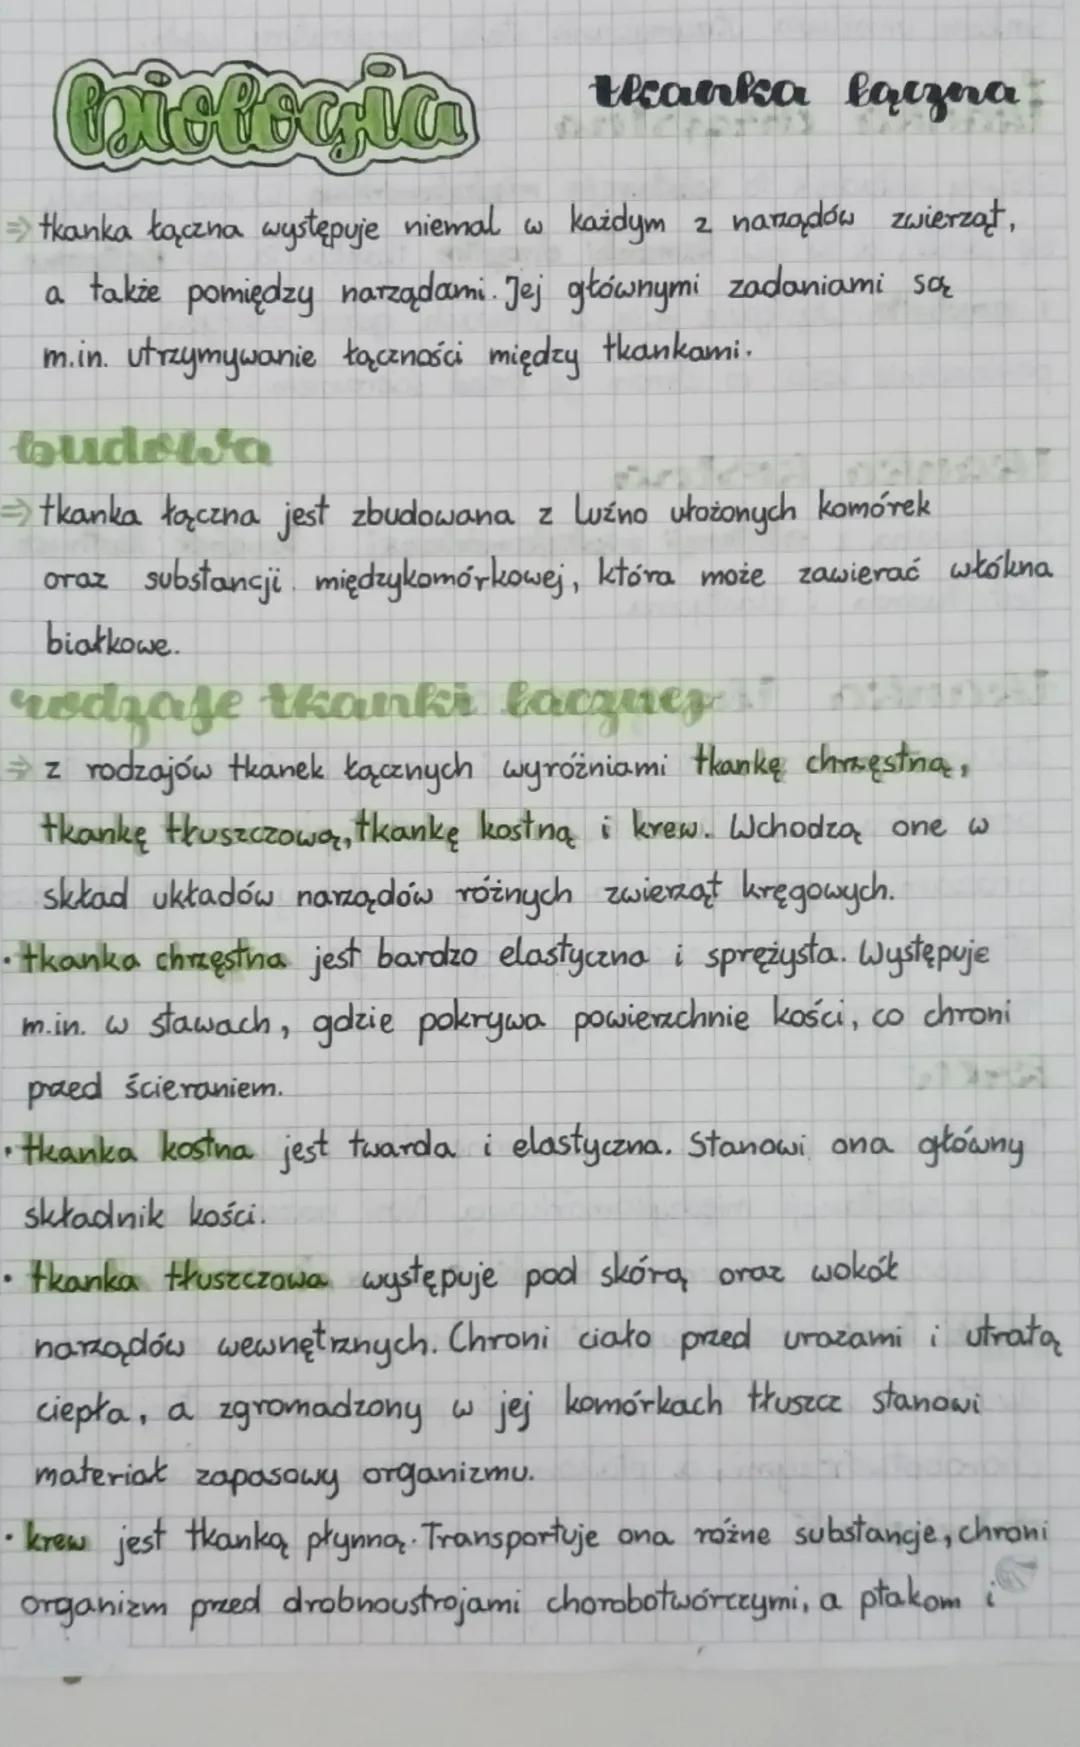 biologia
tkanka łączna
⇒ tkanka łączna występuje niemal w każdym z narządów zwierząt,
a także pomiędzy narządami. Jej głównymi zadaniami są
m.in. utrzymywanie łączności między tkankami.
budowa
⇒ tkanka łączna jest zbudowana z luźno ułożonych komórek
oraz substancji międzykomórkowej, która może zawierać włókna
białkowe.
rodzaje tkanki łącznej
⇒ z rodzajów tkanek łącznych wyróżniami tkankę chrzęstną,
tkankę tłuszczową, tkankę kostną i krew. Wchodzą one w
skład układów narządów różnych zwierząt kręgowych.
• tkanka chrzęstna jest bardzo elastyczna i sprężysta. Występuje
m.in. w stawach, gdzie pokrywa powierzchnie kości, co chroni
przed ścieraniem.
• tkanka kostna jest twarda i elastyczna. Stanowi ona główny
składnik kości.
• tkanka tłuszczowa występuje pod skórą oraz wokół
narządów wewnętrznych. Chroni ciało przed urazami i utratą
ciepła, a zgromadzony w jej komórkach tłuszcz stanowi
materiał zapasowy organizmu.
• krew jest tkanką płynną. Transportuje ona różne substancje, chroni
organizm przed drobnoustrojami chorobotwórczymi, a ptakom i